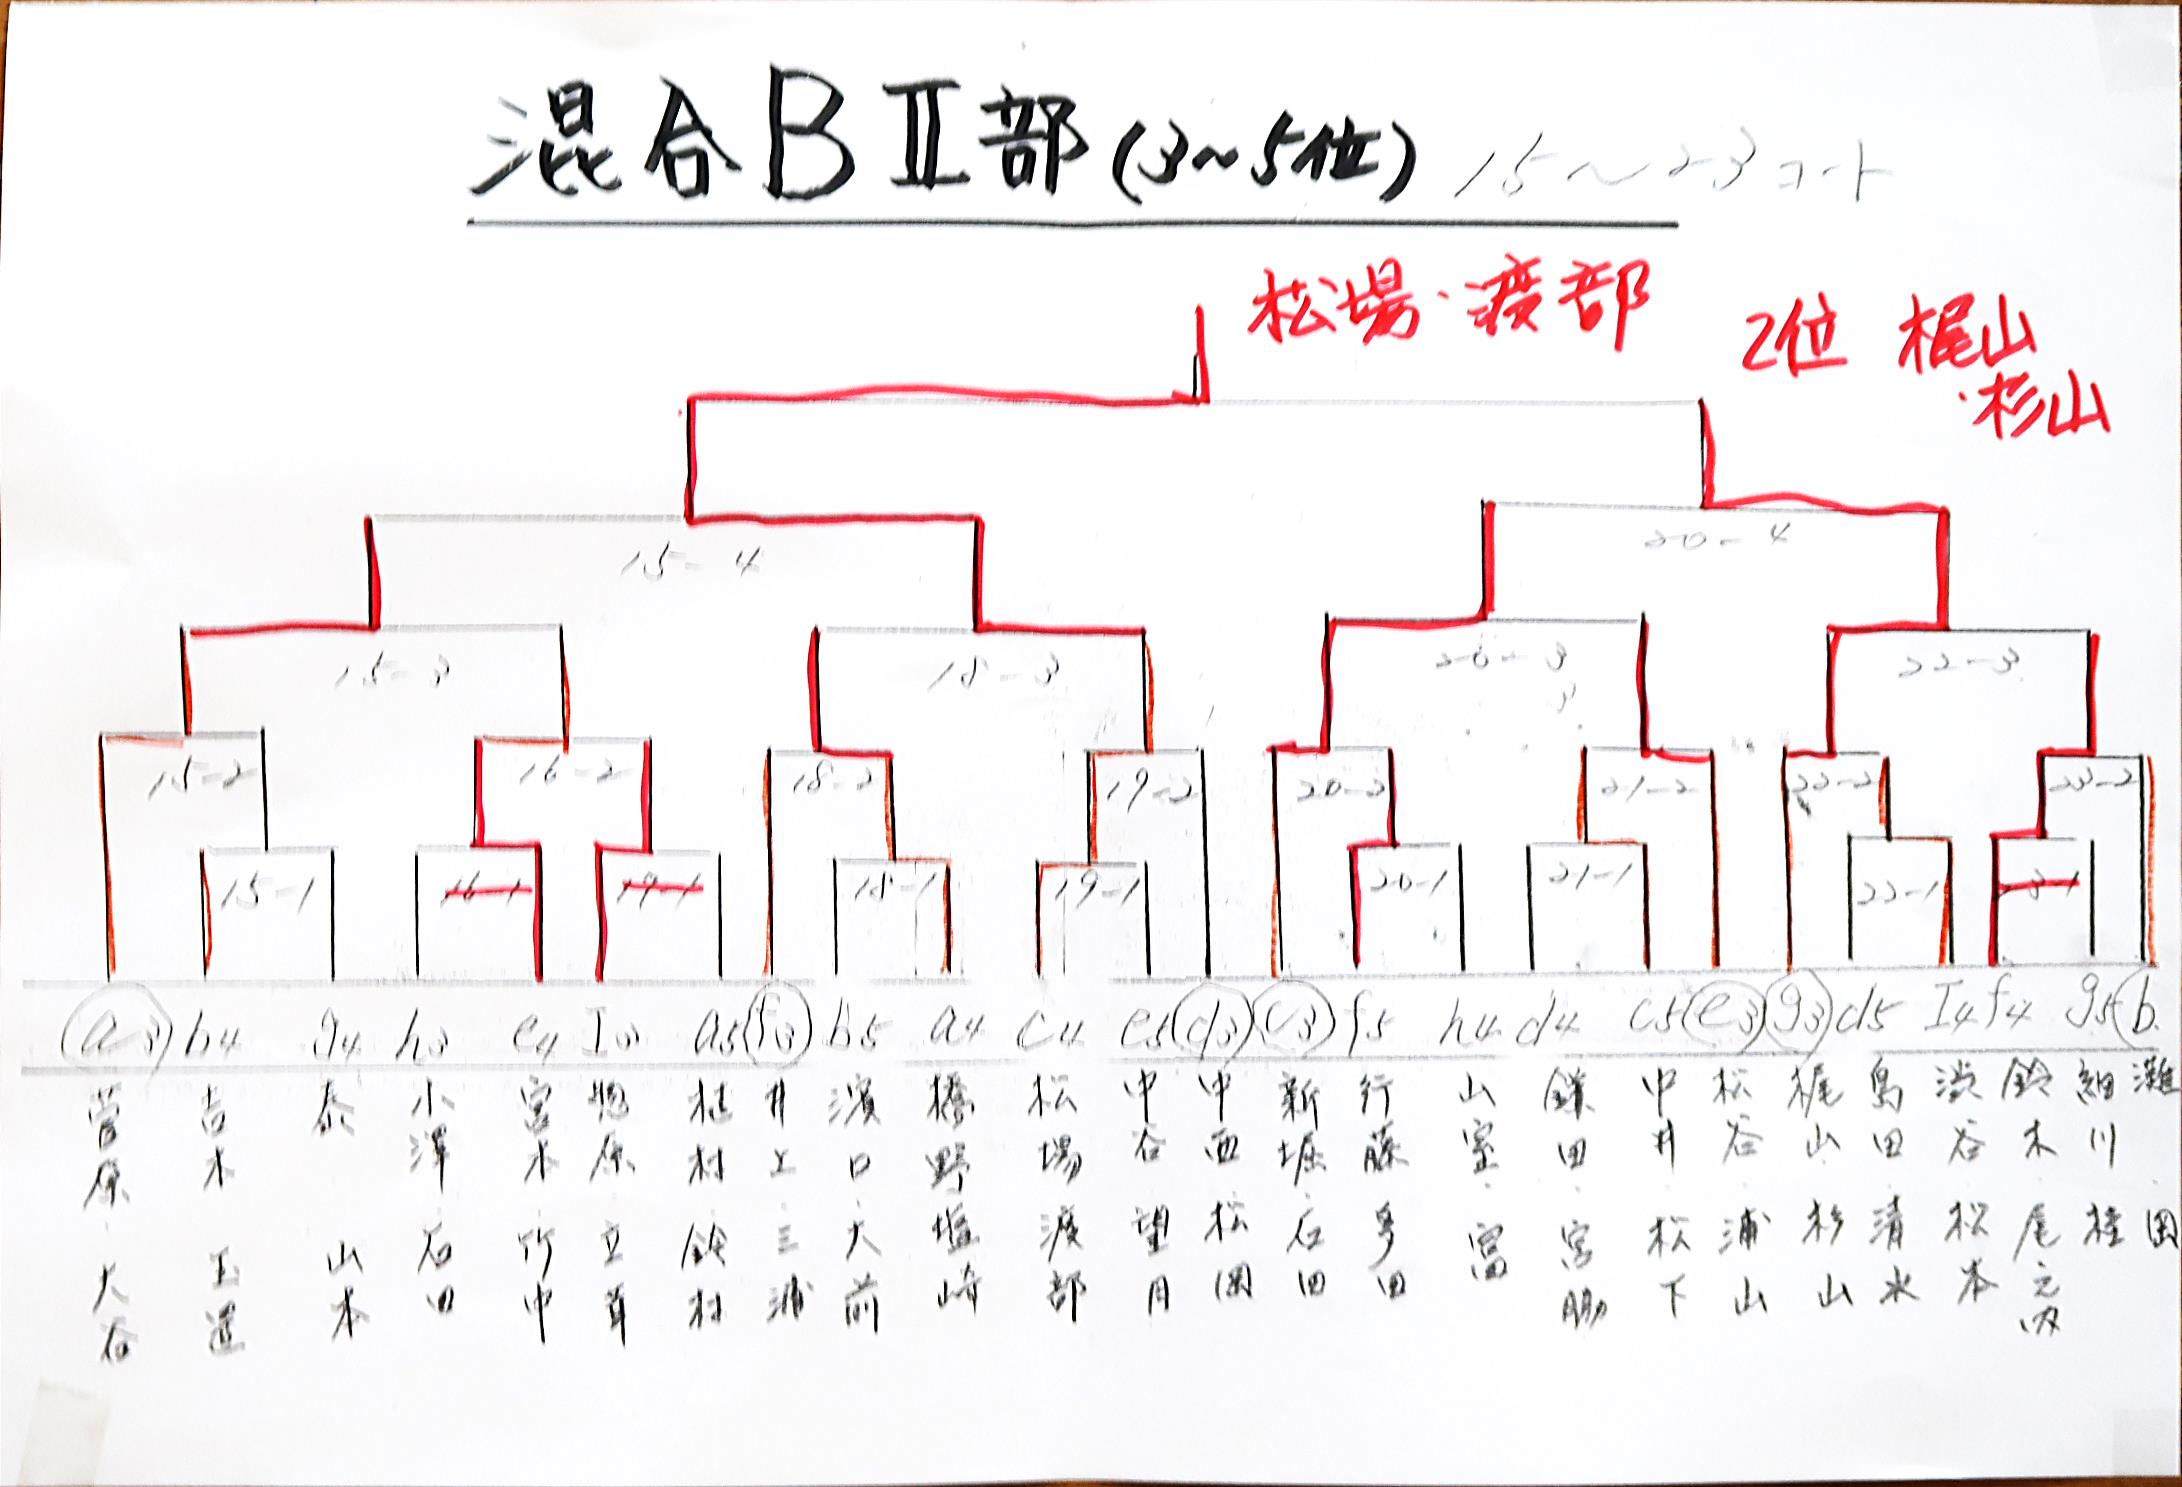 混合BⅡ部(3~5位) 15~23コート
松場・渡部
2位 梶山
・杉山
15-4
20-4
15-3
18-3
20-3
22-3
3
15-2
16-2
18-2
19-2
20-2
21-2
22-2
23-2
15-1
16-1
17-1
18-1
19-1
20-1
21-1
22-1
23-1
a3 b4 g4 h3 e4 I3 a5 f3 b5 a4 c4 e5 d3 c3 f5 h4 d4 c5 e3 g3 d5 I4 f4 g5 b
菅原・大谷
吉木 玉運
泰 山本
小澤 石田
宮木 竹中
惣原・立茸
植村・鈴村
井上・三浦
濱口・大前
橋野 塩崎
松場 渡部
中谷 望月
中西・松岡
新堀・石田
行藤・多田
山室・富
鎌田・宮脇
中井 松下
松谷・浦山
梶山 杉山
島田・清水
渋谷・松本
鈴木・尾之内
細川・桂
灘・岡